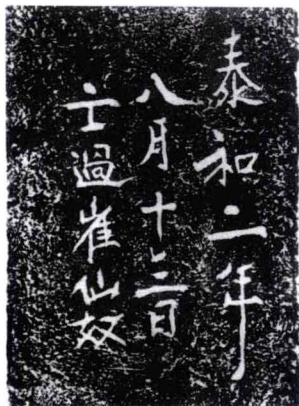 泰和二年
八月十三日
亡過崔仙奴